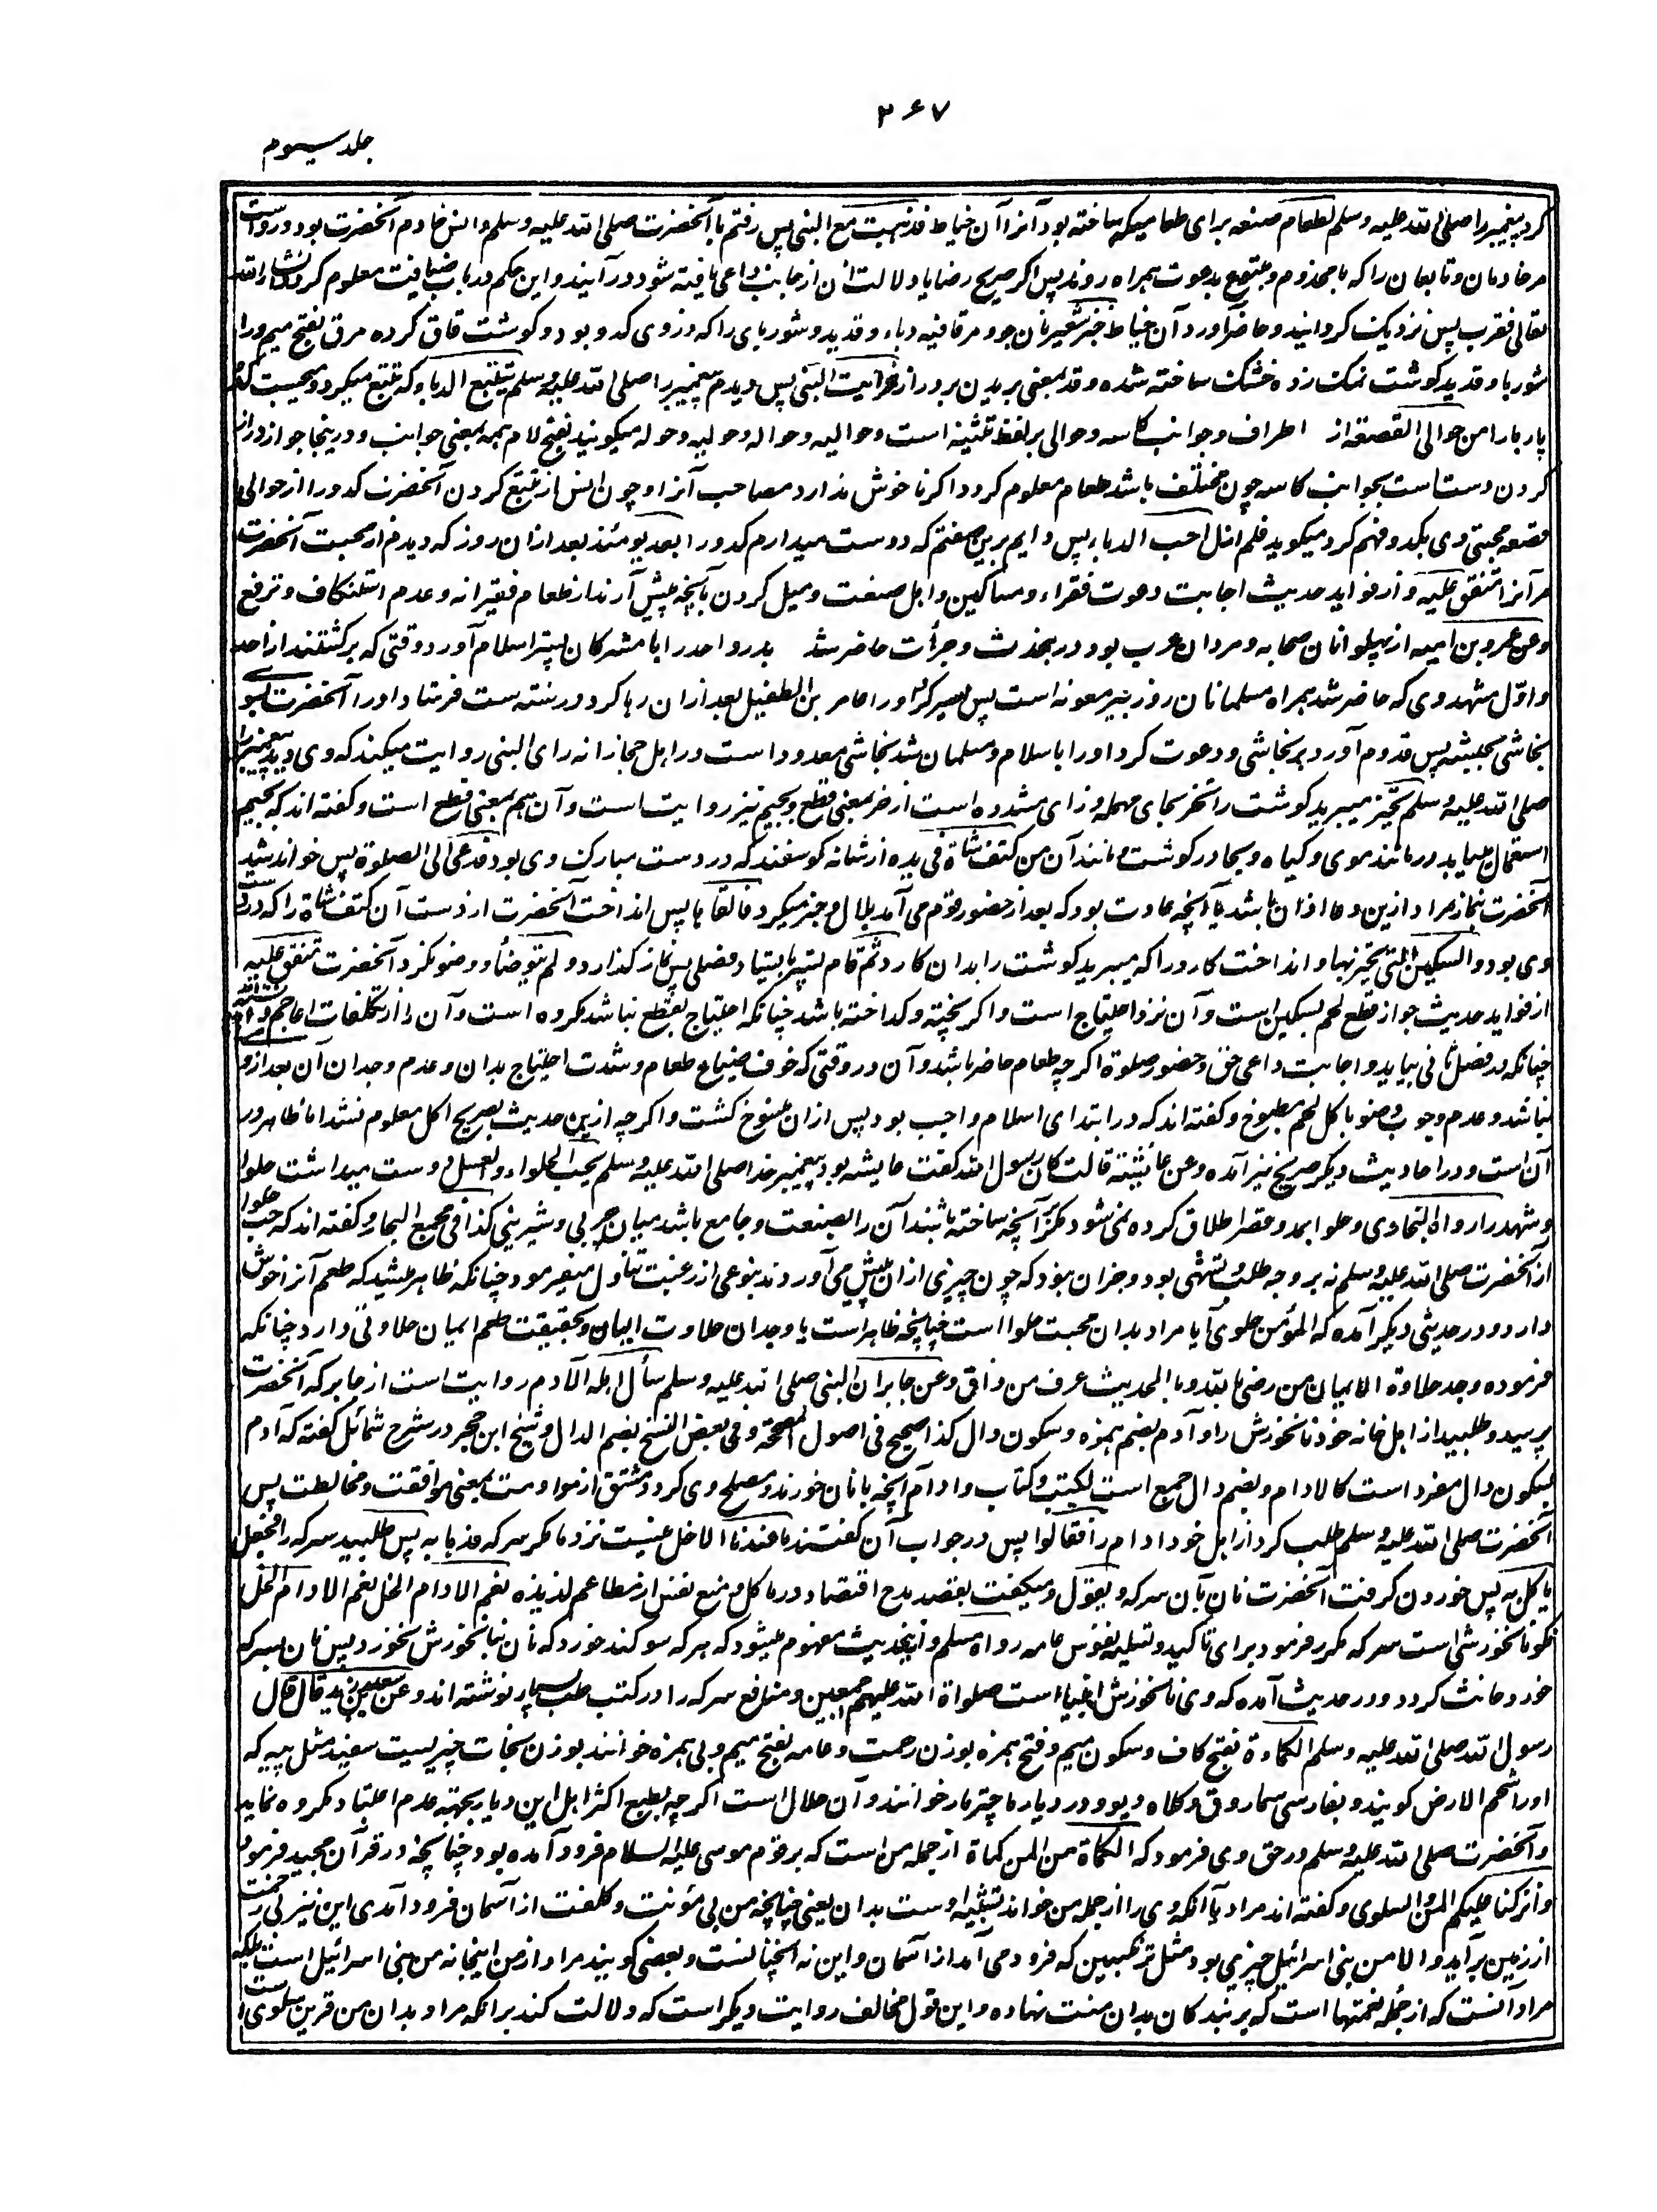 ۳۶۷
جلد سیوم
کرد پیغمبر را صلی الله علیه وسلم لطعام صنعه برای طعامیکه ساخته بود آنرا آن خیاط فذهبت مع النبی پس رفتم با آنحضرت صلی الله علیه وسلم وانس خادم آنحضرت بود و رواست
مر خادمان و تابعان را که با مخدوم و متبوع بدعوت همراه روند پس اگر صریح رضا یا دلالت آن از جانب داعی یافته شود در آیند و این حکم در باب ضیافت معلوم کردد انشاء الله
تعالی فقرب پس نزدیک کردانید و حاضر آورد آن خیاط خبز شعیر نان جو و مرقا فیه دباء و قدید و شوربای را که در وی کدو بود و کوشت قاق کرده مرق بفتح میم و را
شوربا و قدید کوشت نمک زده خشک ساخته شده و قد بمعنی بریدن بدرازا فرأیت النبی پس دیدم پیغمبر را صلی الله علیه وسلم یتتبع الدباء که تتبع میکرد و میجست کدو
پارها را من حوالی القصعة از اطراف و جوانب کاسه و حوالی بر لفظ تثنیه است و حوالیه و حواله و حولیه و حوله میکویند بفتح لام همه بمعنی جوانب و در ینجا جواز دراز
کردن دست است بجوانب کاسه چون مختلف باشد طعام معلوم کردد اکر ناخوش ندارد مصاحب آنرا و چون انس از تتبع کردن آنحضرت کدو را از حوالی
قصعه محبتی وی بکدو فهم کرد میکوید فلم ازل احب الدباء پس دایم برین صفتم که دوست میدارم کدو را بعد یومئذ بعد ازان روز که دیدم از محبت آنحضرت
مر آنرا متفق علیه و از فواید حدیث اجابت دعوت فقراء و مساکین و اهل صنعت و میل کردن بآنچه پیش آرند از طعام فقیرانه و عدم استنکاف و ترفع
وعن عمرو بن امیه از پهلوانان صحابه و مردان عرب بود در نجدت و جرأت حاضر شد بدر و احد را با مشرکان پستر اسلام آورد وقتی که برکشتند از احد
و اول مشهد وی که حاضر شد همراه مسلمانان روز بیر معونه است پس اسیر کرد او را عامر بن الطفیل بعد ازان رها کرد و در سنه ست فرستاد او را آنحضرت بسوی
نجاشی بحبشه پس قدوم آورد بر نجاشی و دعوت کرد او را باسلام و مسلمان شد نجاشی معدود است در اهل حجاز انه رای النبی روایت میکند که وی دید پیغمبر را
صلی الله علیه وسلم یحتز میبرید کوشت را تحز بحای مهمله و زای مشدده است از حز بمعنی قطع و بجیم نیز روایت است و آن هم بمعنی قطع است و کفته اند که بجیم
استعمال می‌یابد در مانند موی و کیاه و بحا در کوشت و مانند آن من کتف شاة فی یده از شانه کوسفند که در دست مبارک وی بود فدعی الی الصلوة پس خوانده شد
آنحضرت بنماز مراد ازین دعا اذان باشد یا آنچه عادت بود که بعد از حضور قوم می آمد بلال و خبر میکرد فالقاها پس انداخت آنحضرت از دست آن کتف شاة را که در دست
وی بود والسکین التی یحتز بها و انداخت کارد را که میبرید کوشت را بدان کارد ثم قام پستر بایستاد فصلی پس نماز کذارد ولم یتوضأ و وضو نکرد آنحضرت متفق علیه
از فواید حدیث جواز قطع لحم بسکین است و آن نزد احتیاج است و اکر پخته و کداخته باشد چنانکه احتیاج بقطع نباشد مکروه است و آن را از تکلفات اعاجم
چنانکه در فصل ثانی بیاید و اجابت داعی حق و حضور صلوة اکرچه طعام حاضر باشد و آن در وقتی که خوف ضیاع طعام و شدت احتیاج بدان و عدم وجدان آن بعد ازو
نباشد و عدم وجوب وضو باکل لحم مطبوخ و کفته اند که در ابتدای اسلام واجب بود پس ازان منسوخ کشت و اکرچه ازین حدیث بصریح اکل معلوم نشد اما ظاهر در
آن است و در احادیث دیکر صریح نیز آمده وعن عائشة قالت کان رسول الله کفت عایشه بود پیغمبر خدا صلی الله علیه وسلم یحب الحلواء والعسل دوست میداشت حلوا
و شهد را رواه البخاری و حلوا بمد و قصر اطلاق کرده نمی شود مکر آنچه ساخته باشند آن را بصنعت و جامع باشد میان چربی و شیرینی کذا فی مجمع البحار و کفته اند که حب حلوا
از آنحضرت صلی الله علیه وسلم نه بر وجه طلب و تشهی بود و جز آن نبود که چون چیزی ازان پیش می آوردند بنوعی از رغبت تناول میفرمود چنانکه ظاهر میشد که طعم آنرا خوش
دارد و در حدیثی دیکر آمده که المؤمن حلوی آیا مراد بدان محبت حلوا است چنانچه ظاهر است یا وجدان حلاوت ایمان و بحقیقت طعم ایمان حلاوتی دارد چنانکه
فرموده وجد حلاوة الایمان من رضی بالله ربا الحدیث عرف من ذاق وعن جابر ان النبی صلی الله علیه وسلم سأل اهله الادم روایت است از جابر که آنحضرت
پرسید و طلبید از اهل خانه خود نانخورش را و آدم بضم همزه و سکون دال کذا صحیح فی اصول المصححة و فی بعض النسخ بضم الدال و شیخ ابن حجر در شرح شمائل کفته که آدم
بسکون دال مفرد است کالادام و بضم دال جمع است ککتب و کتاب و ادام آنچه با نان خورند و مصلح وی کردد و مشتق از مواومت بمعنی موافقت و مخالطت پس
آنحضرت صلی الله علیه وسلم طلب کرد از اهل خود ادام را فقالوا پس در جواب آن کفتند ما عندنا الا خل نیست نزد ما مکر سرکه فدعا به پس طلبید سرکه را فجعل
یاکل به پس خوردن کرفت آنحضرت نان بآن سرکه و یقول و میکفت بقصد مدح اقتصاد در ماکل و منع نفس از مطاعم لذیذه نعم الادام الخل نعم الادام الخل
نکو نانخورشی است سرکه مکرر فرمود برای تاکید و تسلیه نفوس عامه رواه مسلم و ازینحدیث مفهوم میشود که هر که سوکند خورد که نان بنانخورش نخورد پس نان بسرکه
خورد حانث کردد و در حدیث آمده که وی نانخورش انبیاء است صلواة الله علیهم اجمعین و منافع سرکه را در کتب طب بسیار نوشته اند وعن سعید بن زید قال قال
رسول الله صلی الله علیه وسلم الکمأة بفتح کاف و سکون میم و فتح همزه بوزن رحمت و عامه بفتح میم و بی همزه خوانند بوزن نجات چیزیست سفید مثل پیه که
او را شحم الارض کویند و بفارسی سماروق و کلاه دیو و در دیار ما چترمار خوانند و آن حلال است اکرچه بطبع اکثر اهل این دیار بجهة عدم اعتیاد مکروه نماید
و آنحضرت صلی الله علیه وسلم در حق وی فرمود که الکمأة من المن کماة از جمله من است که بر قوم موسی علیه السلام فرود آمده بود چنانچه در قرآن مجید فرمود
وانزلنا علیکم المن والسلوی و کفته اند مراد بآنکه وی را از جمله من خواند تشبیه اوست بدان یعنی چنانچه من بی مؤنت و کلفت از آسمان فرود آمدی این نیز بی زحمت
از زمین بر آید والا من بنی اسرائیل چیزی بود مثل ترنجبین که فرود می آمد از آسمان و این نه آنچنانست و بعضی کویند مراد از من اینجا نه من بنی اسرائیل است بلکه
مراد آنست که از جمله نعمتها است که بر بندکان بدان منت نهاده و این قول مخالف روایت دیکر است که دلالت کند بر انکه مراد بدان من قرین سلوی است